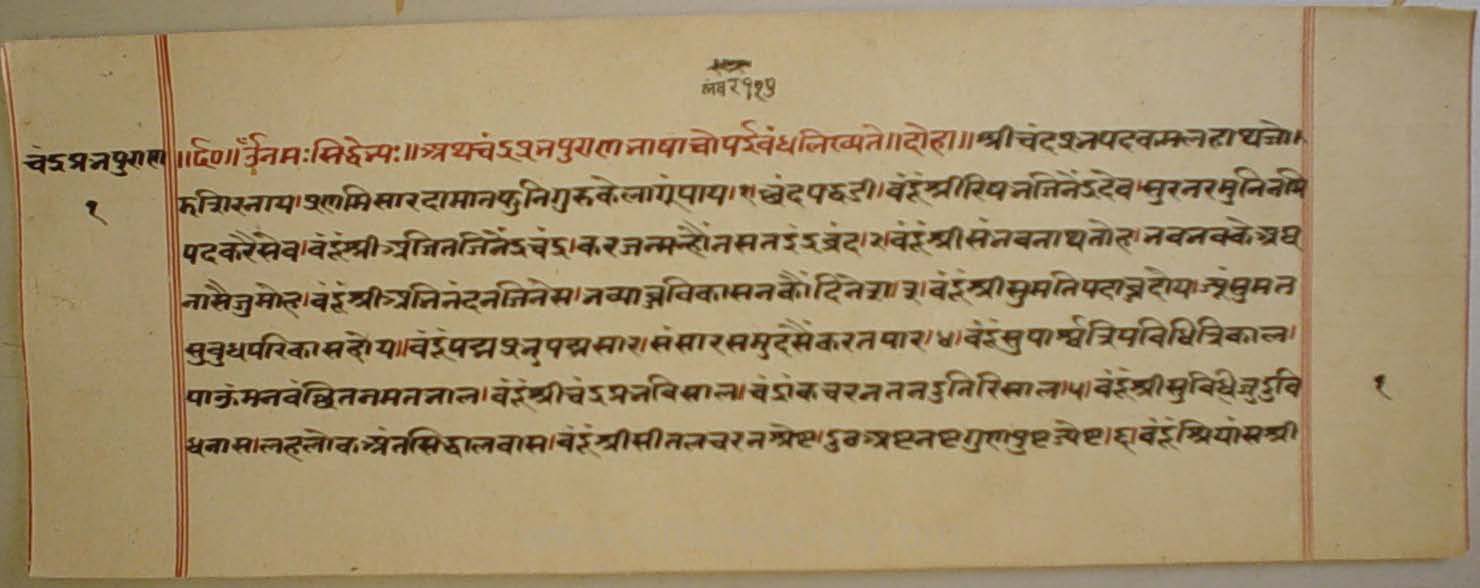 नंबर ११७
चंद्रप्रभपुराण
१
॥र्द०॥ ॐ नमः सिद्धेभ्यः॥ अथ चंद्रप्रभपुराण भाषा चोपई बंध लिख्यते॥ दोहा॥ श्री चंद्रप्रभ पदकमल हाथ जो।
रु त्रिरनाय। प्रणमि सारदा मान फुनि गुरु के लागूं पाय।१। छंद पद्धडी। वंदूं श्री रिषभजिनेंद्र देव। सुर नर मुनि नमि
पद करै सेव। वंदूं श्री अजितजिनेंद्र चंद्र। कर जन्म न्हौंन सत इंद्र व्रंद।२। वंदूं श्री संभवनाथ तोह। भव भव के अघ
नासै जु मोह। वंदूं श्री अभिनंदन जिनेस। भव्याज्ञ विकासन कौं दिनेश।३। वंदूं श्री सुमति पदाज्ञ दोय। ज्यूं सुमत
सुबुध परिकास होय॥ वंदूं पद्मप्रभ पद्मसार। संसार समुद सैं करत पार।४। वंदूं सुपार्श्व त्रिय विधि त्रिकाल।
पाऊं मन वंछित नमत भाल। वंदूं श्री चंद्रप्रभ विसाल। चंद्रांक चरन तन दुति रिसाल।५। वंदूं श्री सुविधि जु दुवि
ध नास। लह लोक अंत सिद्धालवास। वंदूं श्री सीतल चरन श्रेष्ट। दुठ अष्ट नष्ट गुण पुष्ट ज्येष्ट।६। वंदूं श्रियांस श्री
१